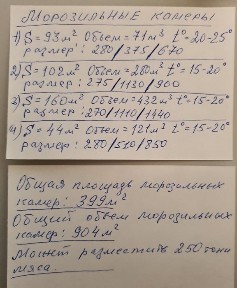 Морозильные камеры
1) S=93м² Объем=71м³ t°=20-25°
размер: 280/375/670
2) S=102м² Объем=280м³ t°=15-20°
размер: 275/1130/900
3) S=160м² Объем=432м³ t°=15-20°
размер: 270/1110/1440
4) S=44м² Объем=121м³ t°=15-20°
размер: 280/510/850
Общая площадь морозильных
камер: 399м²
Общий объем морозильных
камер: 904м²
Может разместить 250 тонн
мяса.